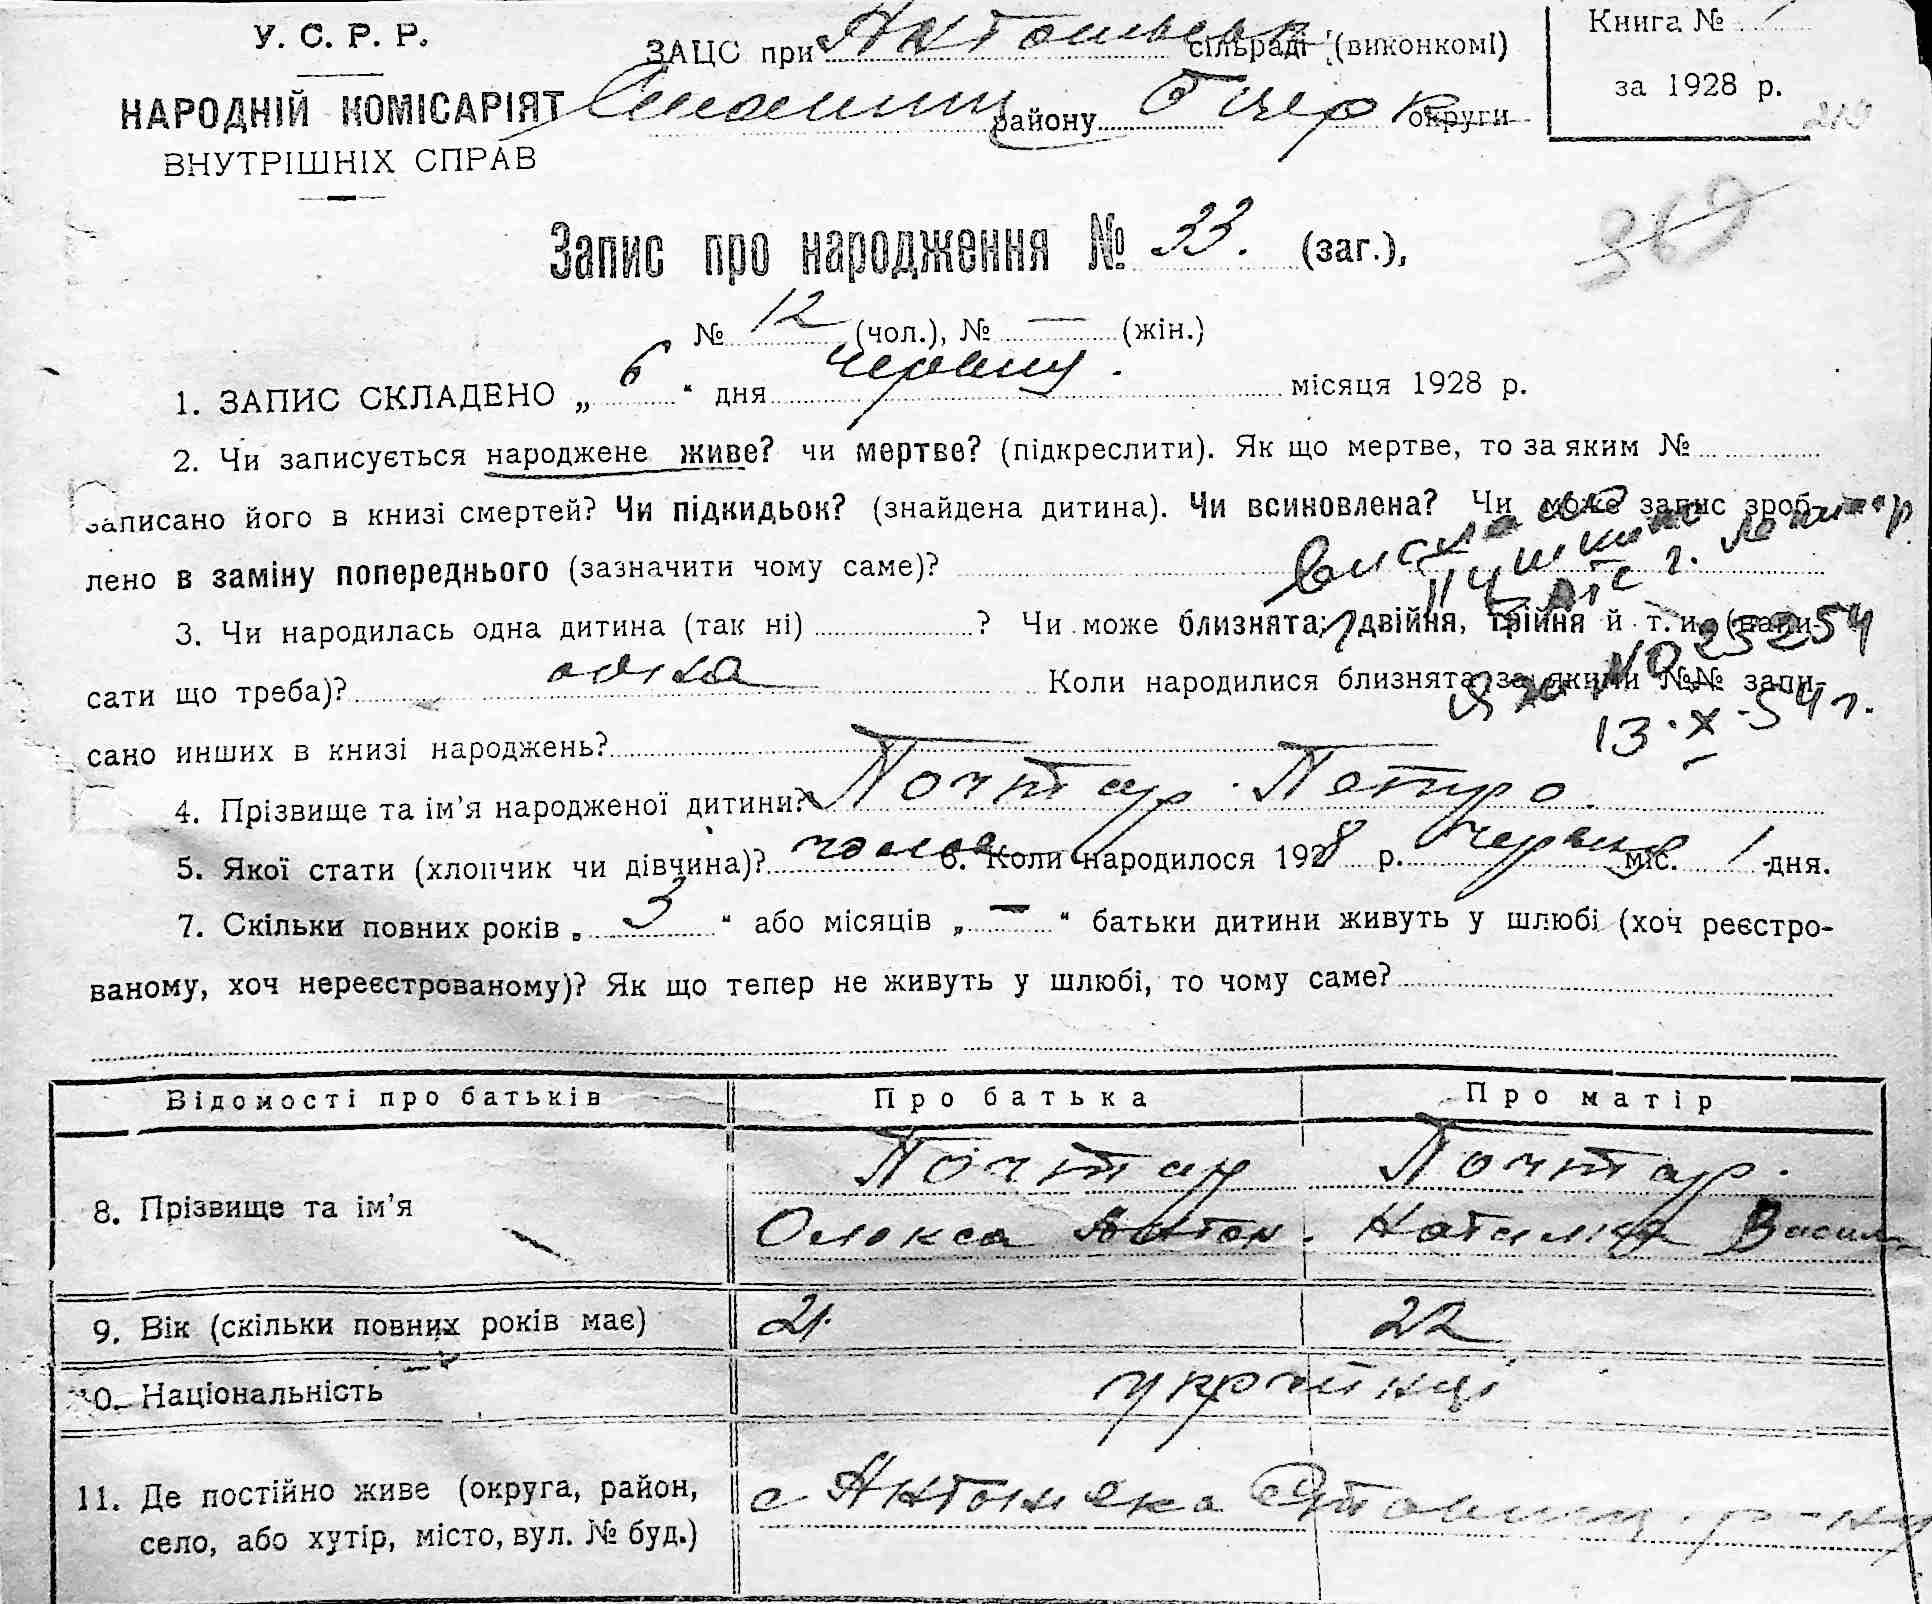 У. С. Р. Р.
НАРОДНІЙ КОМІСАРІЯТ
ВНУТРІШНІХ СПРАВ
ЗАЦС при сільраді (виконкомі)
району округи
Книга №
за 1928 р.
210
369
Запис про народження № 33. (заг.),
№ 12 (чол.), № — (жін.)
1. ЗАПИС СКЛАДЕНО „ 6 “ дня червня. місяця 1928 р.
2. Чи записується народжене живе? чи мертве? (підкреслити). Як що мертве, то за яким №
записано його в книзі смертей? Чи підкидьок? (знайдена дитина). Чи всиновлена? Чи може запис зроб-
лено в заміну попереднього (зазначити чому саме)?
3. Чи народилась одна дитина (так ні) ? Чи може близнята; двійня, трійня й т. и. (напи-
сати що треба)? одна Коли народилися близнята, за якими №№ запи-
сано инших в книзі народжень?
№ 25254
13·X·54 г.
4. Прізвище та ім’я народженої дитини? Почтар Петро.
5. Якої стати (хлопчик чи дівчина)? чолов 6. Коли народилося 1928 р. червня міс. 1 дня.
7. Скільки повних років „ 3 “ або місяців „ — “ батьки дитини живуть у шлюбі (хоч реєстро-
ваному, хоч нереєстрованому)? Як що тепер не живуть у шлюбі, то чому саме?
Відомості про батьків Про батька Про матір
8. Прізвище та ім’я Почтар Почтар.
Олекса Антон. Наталка Васил
9. Вік (скільки повних років має) 21. 22
10. Національність українці
11. Де постійно живе (округа, район,
село, або хутір, місто, вул. № буд.)
с Антонівка р-ну